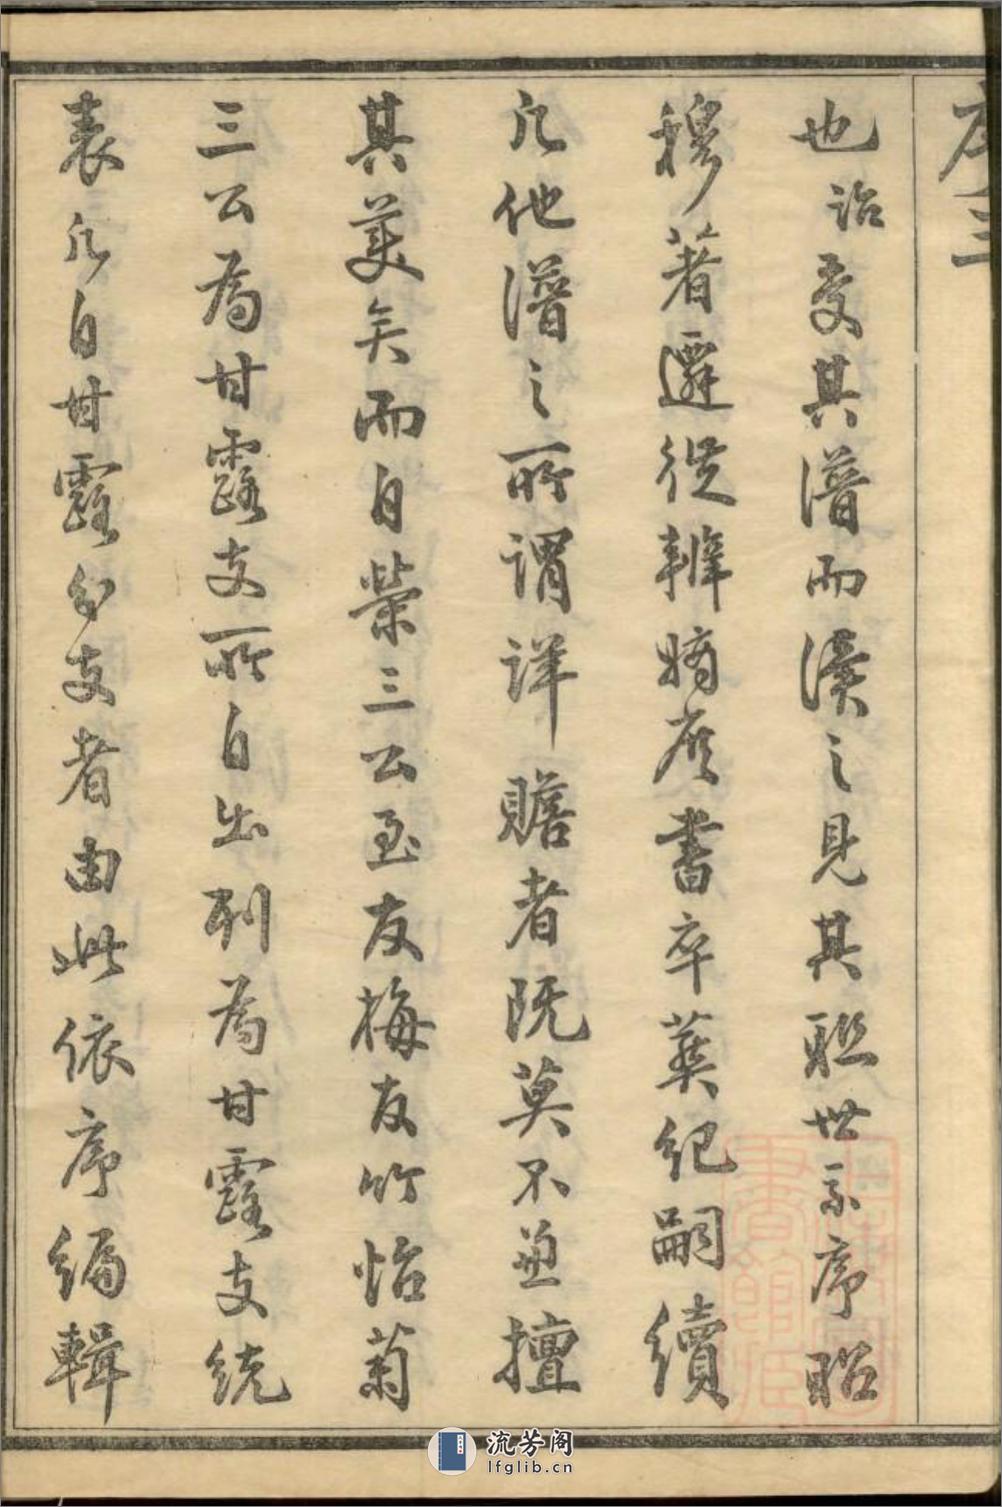 序三
也詒受其譜而讀之見其聯世系序昭
穆著遷徙辨嫡庶書卒葬紀嗣續
凡他譜之所謂詳贍者既莫不並擅
其美矣而自榮三公至友梅友竹怡菊
三公為甘露支所自出列為甘露支統
表凡自甘露分支者由此依序編輯
流芳阁
lfglib.cn